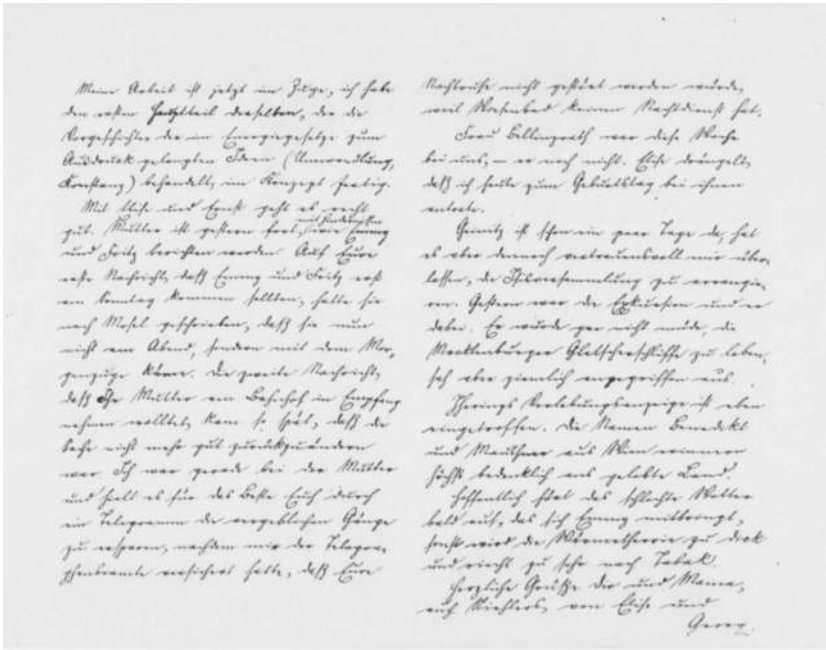 Meine Arbeit ist jetzt im Zuge, ich habe
den ersten Hauptteil derselben, der die
Vorgeschichte der im Energiegesetze zum
Ausdruck gelangten Ideen (Umwandlung,
Konstanz) behandelt, im Konzept fertig.
Mit Elise und Ernst geht es recht
gut. Mutter ist gestern fort, wie Emmy
und Fritz berichten werden. Auf Eure
erste Nachricht, daß Emmy und Fritz erst
am Sonntag kommen sollten, hatte sie
nach Mosel geschrieben, daß sie nun
nicht am Abend, sondern mit dem Mor-
genzuge käme. Die zweite Nachricht,
daß Ihr Mutter am Bahnhof in Empfang
nehmen wolltet, kam so spät, daß die
Sache nicht mehr gut zurückzuändern
war. Ich war gerade bei der Mutter
und hielt es für das Beste Euch durch
ein Telegramm die vergeblichen Gänge
zu ersparen, nachdem mir der Telegra-
phenbeamte versichert hatte, daß Eure
Nachtruhe nicht gestört werden würde,
weil keinen Nachtdienst hat.
Frau Bellingrath war diese Woche
bei uns, – er noch nicht. Elise drängelt,
daß ich heute zum Geburtstag bei ihnen
antrete.
Geinitz ist schon ein paar Tage da, hat
es aber dennoch vertrauensvoll mir über-
lassen, die Isisversammlung zu arrangie-
ren. Gestern war die Exkursion und er
dabei. Er wurde gar nicht müde, die
Mecklenburger Gletscherschliffe zu loben,
sah aber ziemlich angegriffen aus.
Iherings Verlobungsanzeige ist eben
eingetroffen. Die Namen Benedikt
und Mauthner aus Wien erinnern
höchst bedenklich ans gelobte Land.
Hoffentlich hört das schlechte Wetter
bald auf, das sich Emmy mitbringt,
sonst wird die Wärmetheorie zu dick
und riecht zu sehr nach Tabak.
Herzliche Grüße Dir und Mama,
auch Kiehlers, von Elise und
Georg.